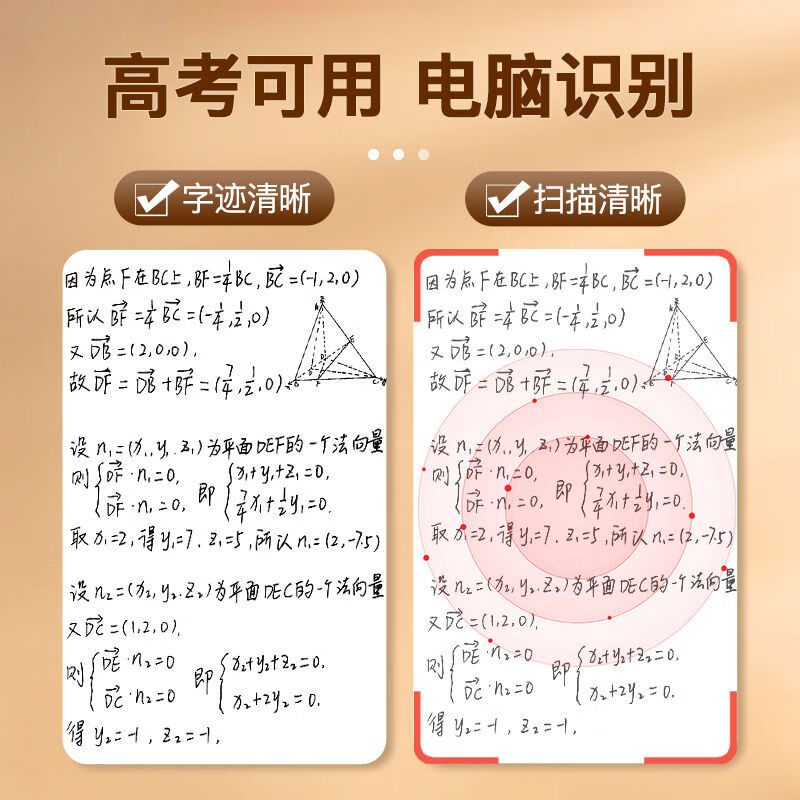 高考可用 电脑识别
字迹清晰
因为点F在BC上,BF=1/4BC,BC→=(-1,2,0)
所以BF→=1/4BC→=(-1/4,1/2,0)
又DB→=(2,0,0),
故DF→=DB→+BF→=(7/4,1/2,0)
设n₁=(x₁,y₁,z₁)为平面DEF的一个法向量
则{DF→·n₁=0, 即{x₁+y₁+z₁=0,
DF→·n₁=0, 7/4x₁+1/2y₁=0.
取x₁=2,得y₁=7.z₁=5,所以n₁=(2,-7.5)
设n₂=(x₂,y₂.z₂)为平面DEC的一个法向量
又DC→=(1,2,0),
则{DE→·n₂=0 即{x₂+y₂+z₂=0,
DC→·n₂=0 x₂+2y₂=0.
得y₂=-1,z₂=-1,
扫描清晰
因为点F在BC上,BF=1/4BC,BC→=(-1,2,0)
所以BF→=1/4BC→=(-1/4,1/2,0)
又DB→=(2,0,0),
故DF→=DB→+BF→=(7/4,1/2,0)
设n₁=(x₁,y₁,z₁)为平面DEF的一个法向量
则{DF→·n₁=0, 即{x₁+y₁+z₁=0,
DF→·n₁=0, 7/4x₁+1/2y₁=0.
取x₁=2,得y₁=7.z₁=5,所以n₁=(2,-7.5)
设n₂=(x₂,y₂.z₂)为平面DEC的一个法向量
又DC→=(1,2,0),
则{DE→·n₂=0 即{x₂+y₂+z₂=0,
DC→·n₂=0 x₂+2y₂=0.
得y₂=-1,z₂=-1,